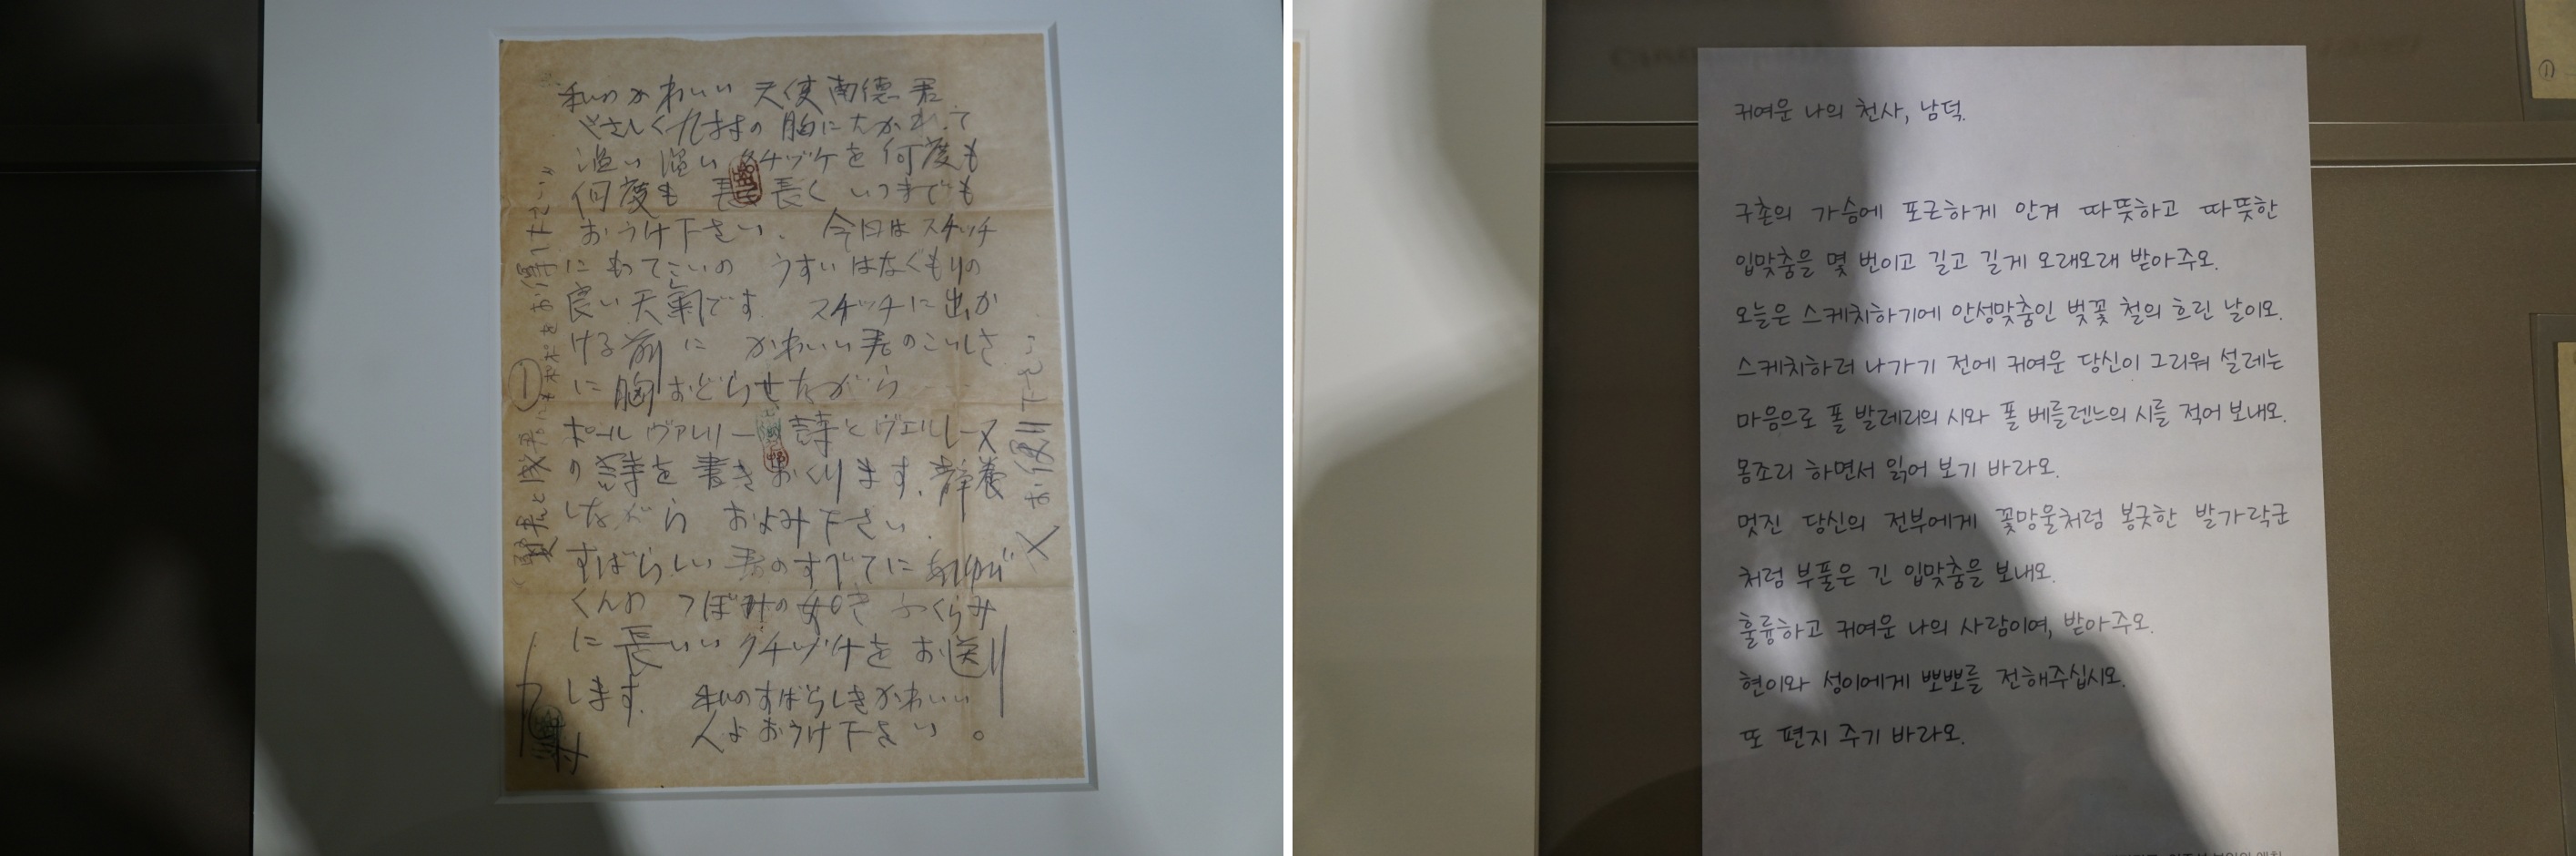 私のかわいい 天使南德君
やさしく九村の胸にだかれて
温い温い クチヅケを何度も
何度も 長く長く いつまでも
おうけ下さい. 今日はスケッチ
にもってこいの うすいはなぐもりの
良い天氣です. スケッチに出か
ける前に かわいい君のこいしさ
に胸おどらせながら
ポールヴァレリーの詩とヴェルレーヌ
の詩を書きおくります. 静養
しながら およみ下さい.
すばらしい君のすべてに
くんの つぼみの如き ふくらみ
に長いい クチヅケをお送り
します. 私のすばらしきかわいい
人よおうけ下さい。
九村
①
귀여운 나의 천사, 남덕.
구촌의 가슴에 포근하게 안겨 따뜻하고 따뜻한
입맞춤을 몇 번이고 길고 길게 오래오래 받아주오.
오늘은 스케치하기에 안성맞춤인 벚꽃 철의 흐린 날이오.
스케치하러 나가기 전에 귀여운 당신이 그리워 설레는
마음으로 폴 발레리의 시와 폴 베를렌느의 시를 적어 보내오.
몸조리 하면서 읽어 보기 바라오.
멋진 당신의 전부에게 꽃망울처럼 봉긋한 발가락군
처럼 부풀은 긴 입맞춤을 보내오.
훌륭하고 귀여운 나의 사람이여, 받아주오.
현이와 성이에게 뽀뽀를 전해주십시오.
또 편지 주기 바라오.
①